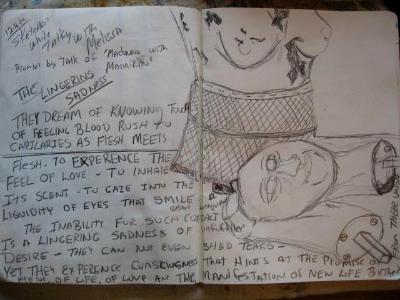 Sketch while
Talky with
Melissa
Prompt by Talk of "Madonna with
Mannikin"
THE LINGERING
SADNESS
THEY DREAM OF KNOWING TOUCH
OF FEELING BLOOD RUSH TO
CAPILARIES AS FLESH MEETS
FLESH - TO EXPERIENCE THE
FEEL OF LOVE - TO INHALE
ITS SCENT - TO GAZE INTO THE
LIQUIDITY OF EYES THAT SMILE
THE INABILITY FOR SUCH CONTACT
IS A LINGERING SADNESS OF UNFULFILLED
DESIRE - THEY CAN NOT EVEN SHED TEARS -
YET THEY EXPERENCE CONSCIOUSNESS THAT HINTS AT THE PROMISE OF
FLESH, OF LIFE, OF LOVE AN THE MANIFESTATION OF NEW LIFE BIRTHED
FROM THERE